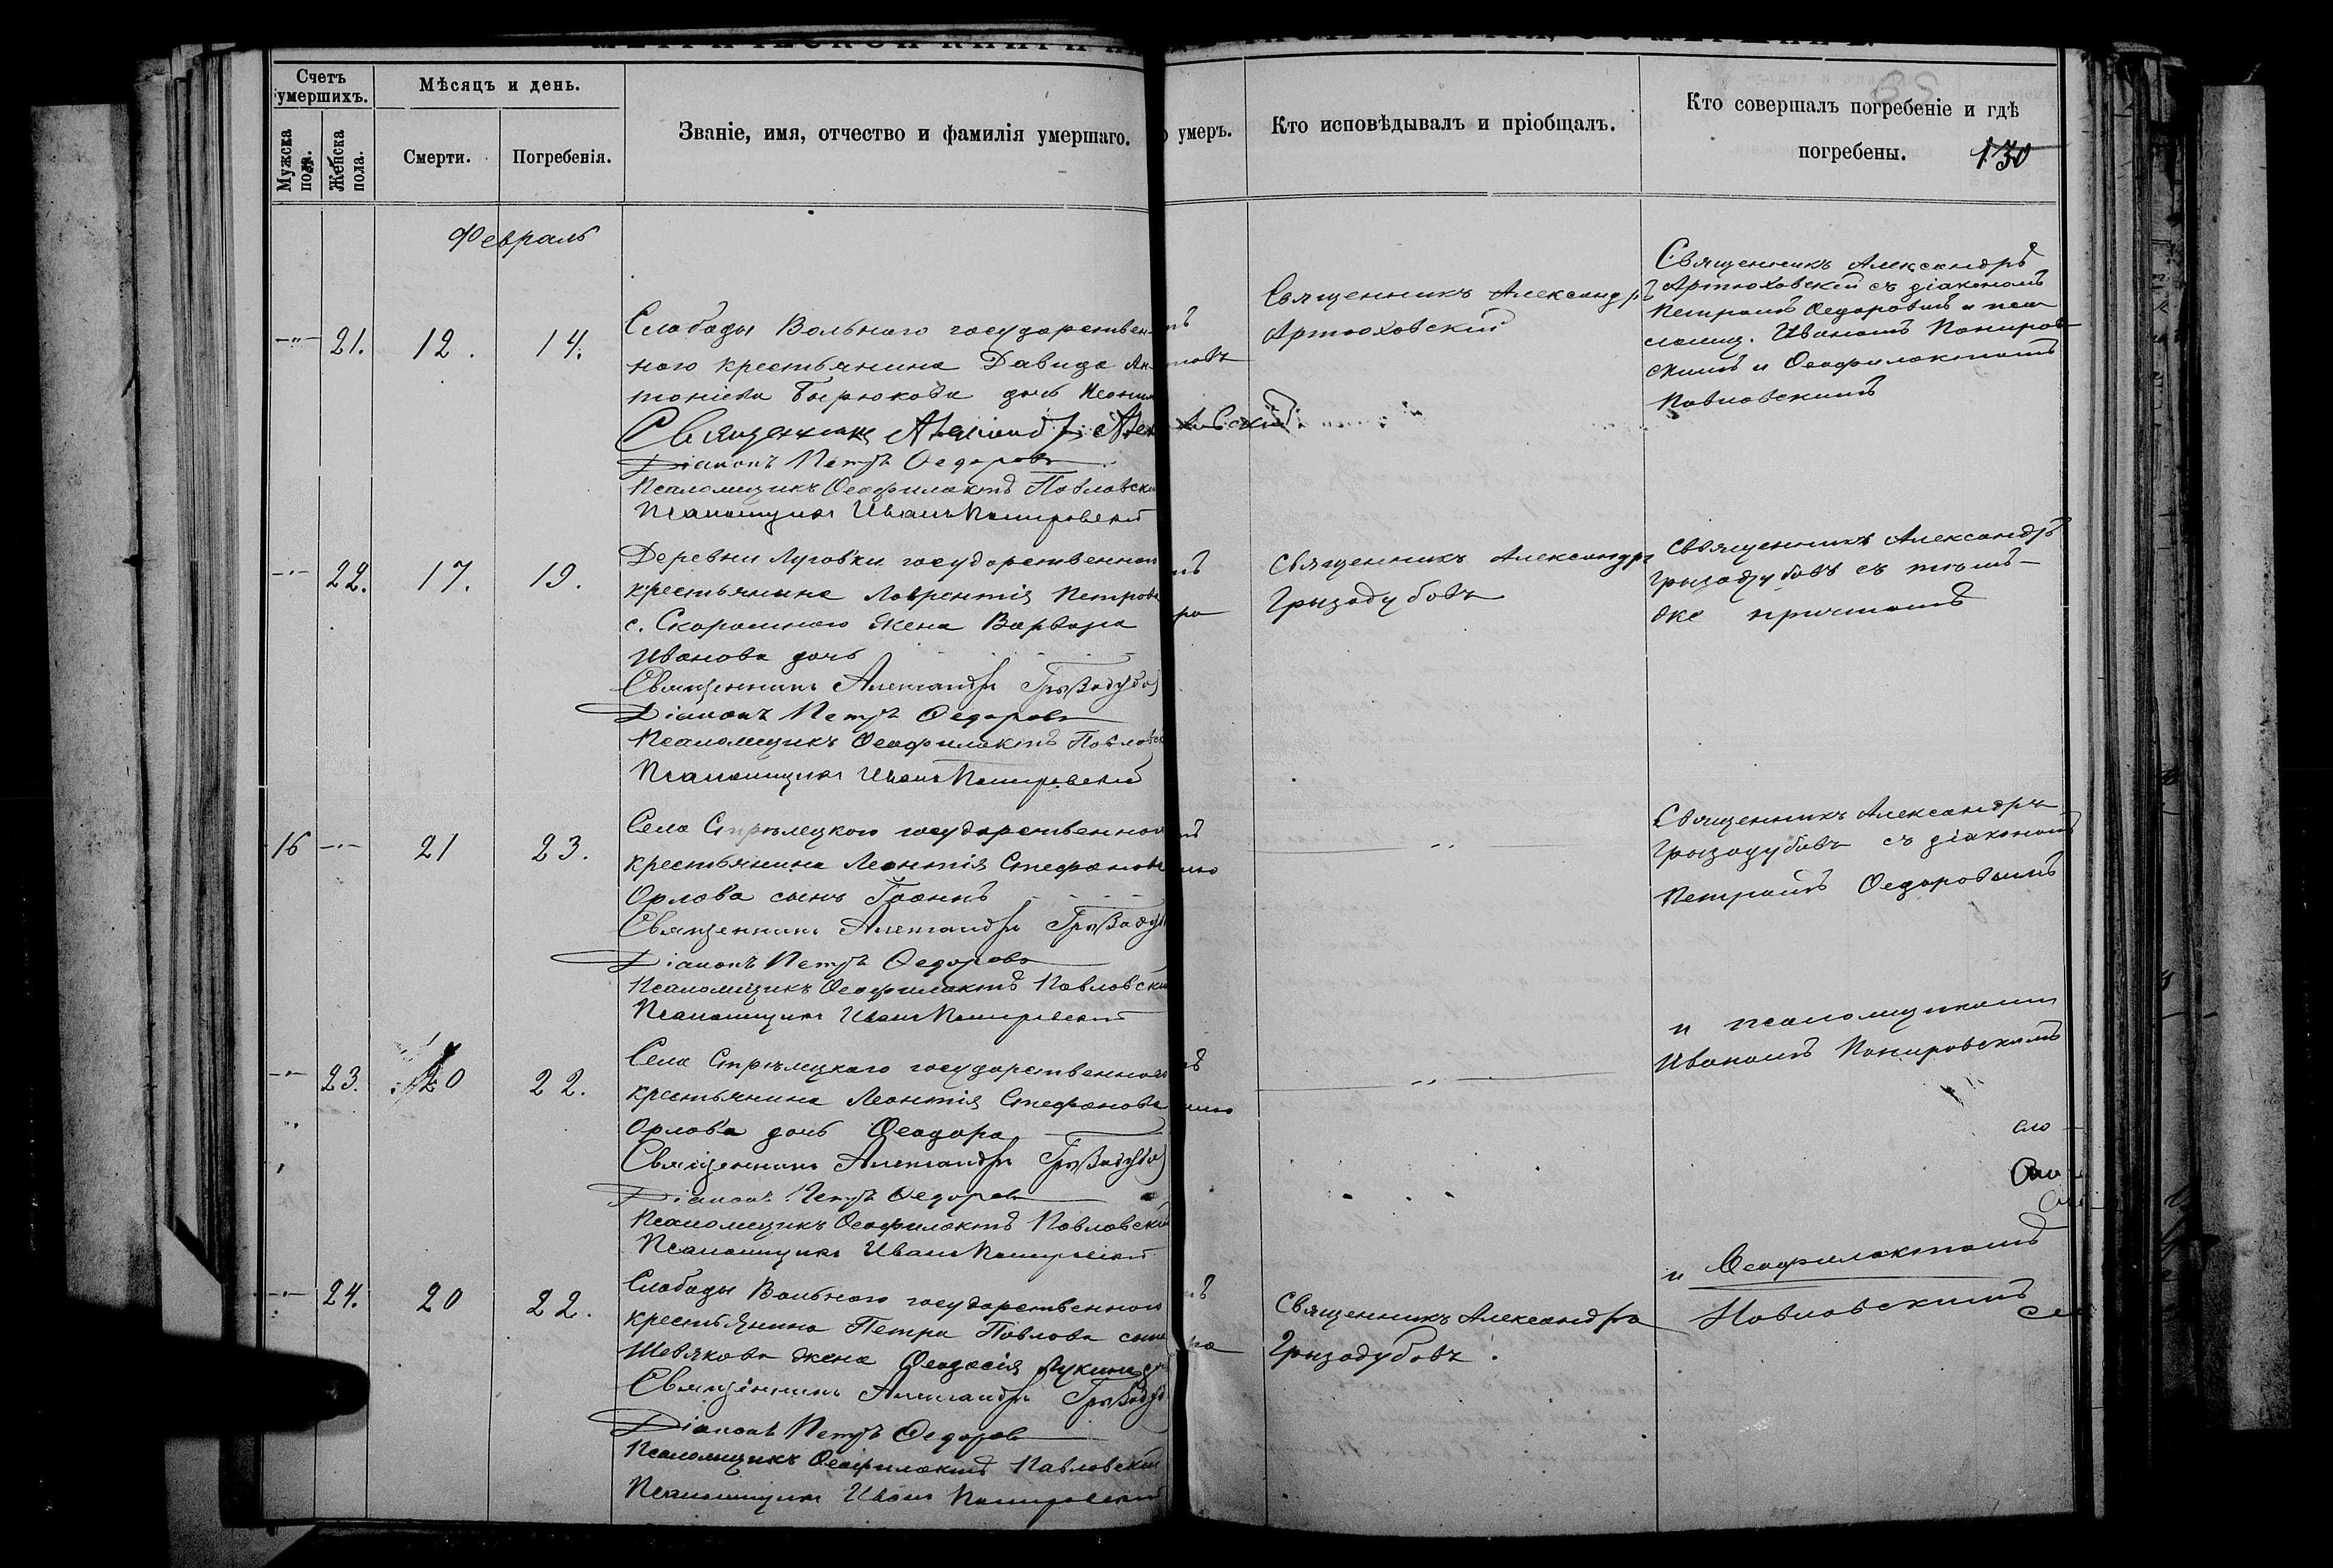 Счетъ умершихъ.
Мужска пола.
Женска пола.
Мѣсяцъ и день.
Смерти.
Погребенія.
Званіе, имя, отчество и фамилія умершаго.
умеръ.
Кто исповѣдывалъ и пріобщалъ.
Кто совершалъ погребеніе и гдѣ
погребены.
130
Февраль
21.
12.
14.
Слободы Вольного государствен-
ного крестьянина Давида Ан-
тоніева Бирюкова дочь
Священникъ
Діаконъ Петръ Ѳедоровъ
Псаломщикъ Ѳеофилактъ Павловскі
Псаломщикъ Иванъ
Священникъ Александръ
Артюховскій
Священникъ Александръ
Артюховскій съ діакономъ
Петромъ Ѳедоровымъ и псал
ломщ. Иваномъ
скимъ и Ѳеофилактомъ
Павловскимъ
22.
17.
19.
Деревни Луговки государственнаго
крестьянина Лаврентія Петрова
с. Скороднаго жена Варвара
Иванова дочь
Священникъ Александръ Грызодубов
Діаконъ Петръ Ѳедоровъ
Псаломщикъ Ѳеофилактъ Павловск
Псаломщикъ Иванъ
Священникъ Александръ
Грызодубовъ
Священникъ Александръ
Грызодубовъ съ тѣмъ-
же причтомъ
16
21
23.
Села Стрѣлецкого государственного
крестьянина Леонтія Стефанова
Орлова сынъ Іоаннъ
Священникъ Александръ Грызоду
Діаконъ Петръ Ѳедоровъ
Псаломщикъ Ѳеофилактъ Павловскі
Псаломщикъ Иванъ
Священникъ Александръ
Грызодубовъ съ діакономъ
Петромъ Ѳедоровымъ
и псаломщикомъ
Иваномъ
23.
20
22.
Села Стрѣлецкаго государственнаго
крестьянина Леонтія Стефанова
Орлова дочь Ѳеодора
Священникъ Александръ Грызодубов
Діаконъ Петръ Ѳедоровъ
Псаломщикъ Ѳеофилактъ Павловскій
Псаломщикъ Иванъ
24.
20
22.
Слободы Вольного государственного
крестьянина Петра Павлова сына
Шевякова жена Ѳеодосія Лукина
Священникъ Александръ Грызодуб
Діаконъ Петръ Ѳедоровъ
Псаломщикъ Ѳеофилактъ Павловскій
Псаломщикъ Иванъ
Священникъ Александръ
Грызодубовъ.
и Ѳеофилактомъ
Павловскимъ